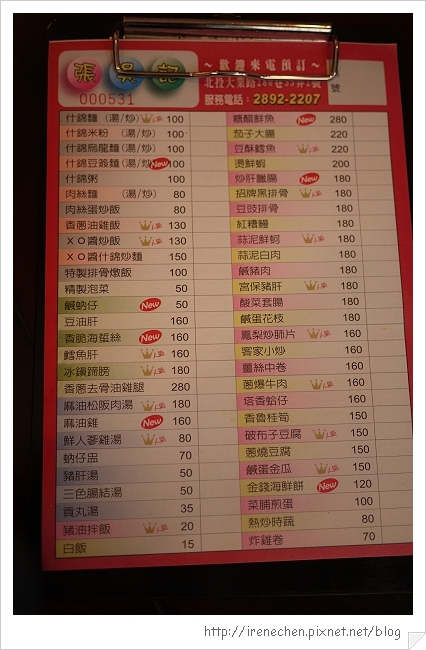 張 吳 記
000531
～歡迎來電預訂～
服務電話：2892-2207
號
什錦麵（湯/炒） 100
什錦米粉（湯/炒） 100
什錦烏龍麵（湯/炒） 100
什錦豆簽麵（湯/炒） New 100
什錦粥 100
肉絲麵（湯/炒） 80
肉絲蛋炒飯 80
香蔥油雞飯 130
XO醬炒飯 130
XO醬什錦炒麵 150
特製排骨燉飯 100
精製泡菜 50
鹹蚋仔 New 50
豆油肝 160
香脆海蜇絲 New 160
鱈魚肝 160
冰鎮蹄膀 180
香蔥去骨油雞腿 280
麻油松阪肉湯 180
麻油雞 New 160
鮮人蔘雞湯 80
蚋仔盅 70
豬肝湯 50
三色腸結湯 50
貢丸湯 35
豬油拌飯 20
白飯 15
糖醋鮮魚 New 280
茄子大腸 220
豆酥鱈魚 220
燙鮮蝦 200
炒肝臘腸 New 180
招牌黑排骨 180
豆豉排骨 180
紅糟鰻 180
蒜泥鮮蚵 180
蒜泥白肉 180
鹹豬肉 180
宮保豬肝 180
酸菜套腸 180
鹹蛋花枝 180
鳳梨炒肺片 160
客家小炒 160
薑絲中卷 160
蔥爆牛肉 160
塔香蛤仔 160
香魯桂筍 150
破布子豆腐 150
蔥燒豆腐 150
鹹蛋金瓜 150
金錢海鮮餅 New 120
菜脯煎蛋 100
熱炒時蔬 80
炸雞卷 70
http://irenechen.pixnet.net/blog